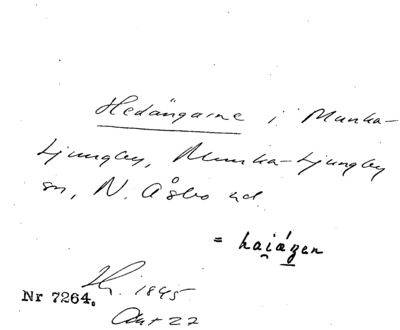 Hedängarne i Munka-
Ljungby, Munka-Ljungby
sn, N. Åsbo hd.
= haiázen
Nr 7264. Th. 1845
Akt 22